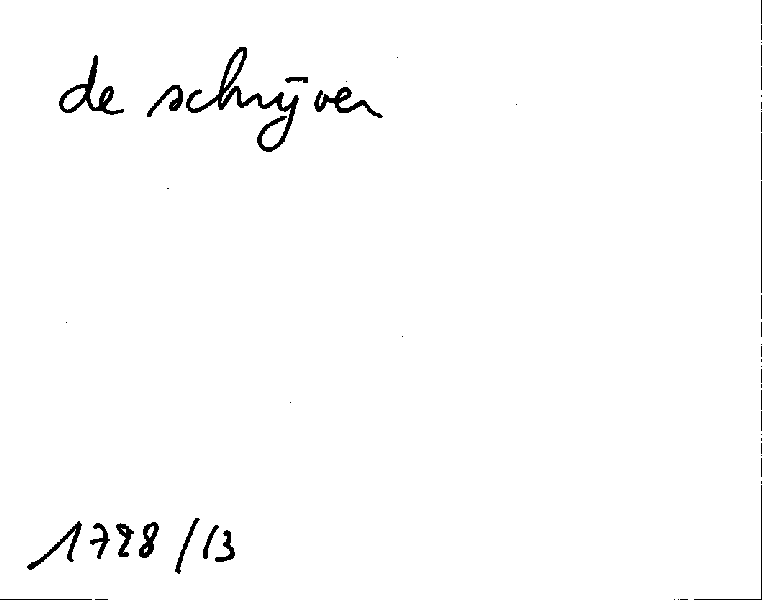 de schrijver
1728/13